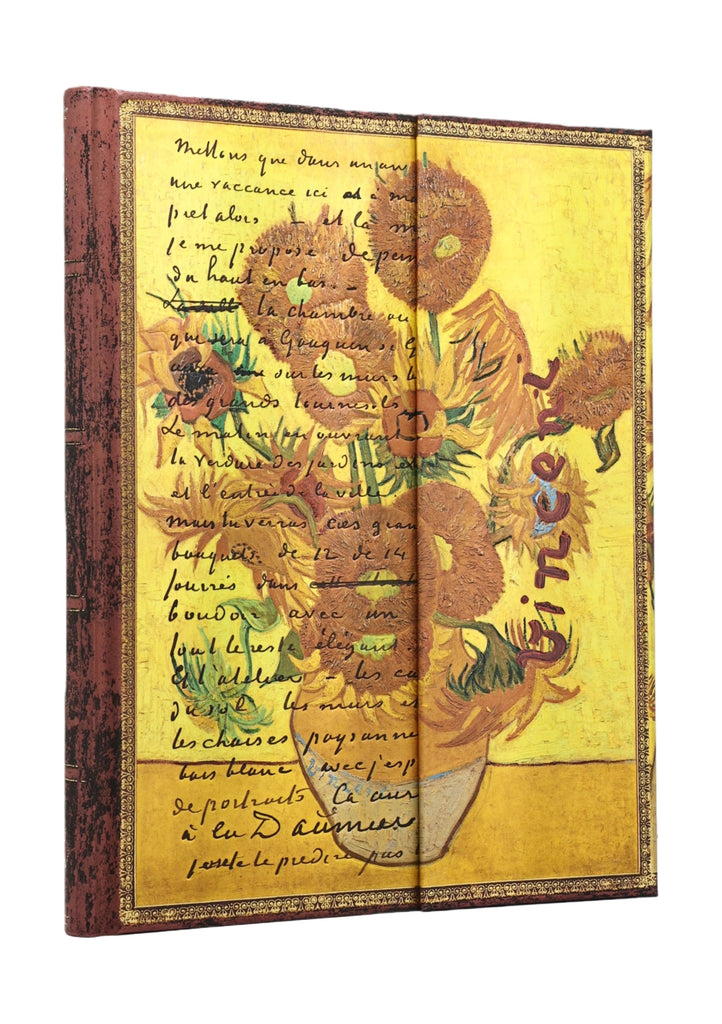 Mettons que dans un an
une vaccance ici et à me
pret alors – et là m
je me propose de pein
du haut en bas. –
La salle la chambre ou
que sera à Gauguin si G
sur les murs b
des grands tournesols
Le matin en ouvrant
la verdure des jardins et
et l'entrée de la ville.
Mais tu verras ces gran
bouquets de 12 de 14
fourrés dans cette
boudoir avec un
tout le reste élégant.
Et l'atelier – les ca
du sol les murs et
les chaises paysanne
bois blanc avec j'esp
de portraits Ça aur
à la Daumier
j'ose te le prédire pas
Vincent
Vincent